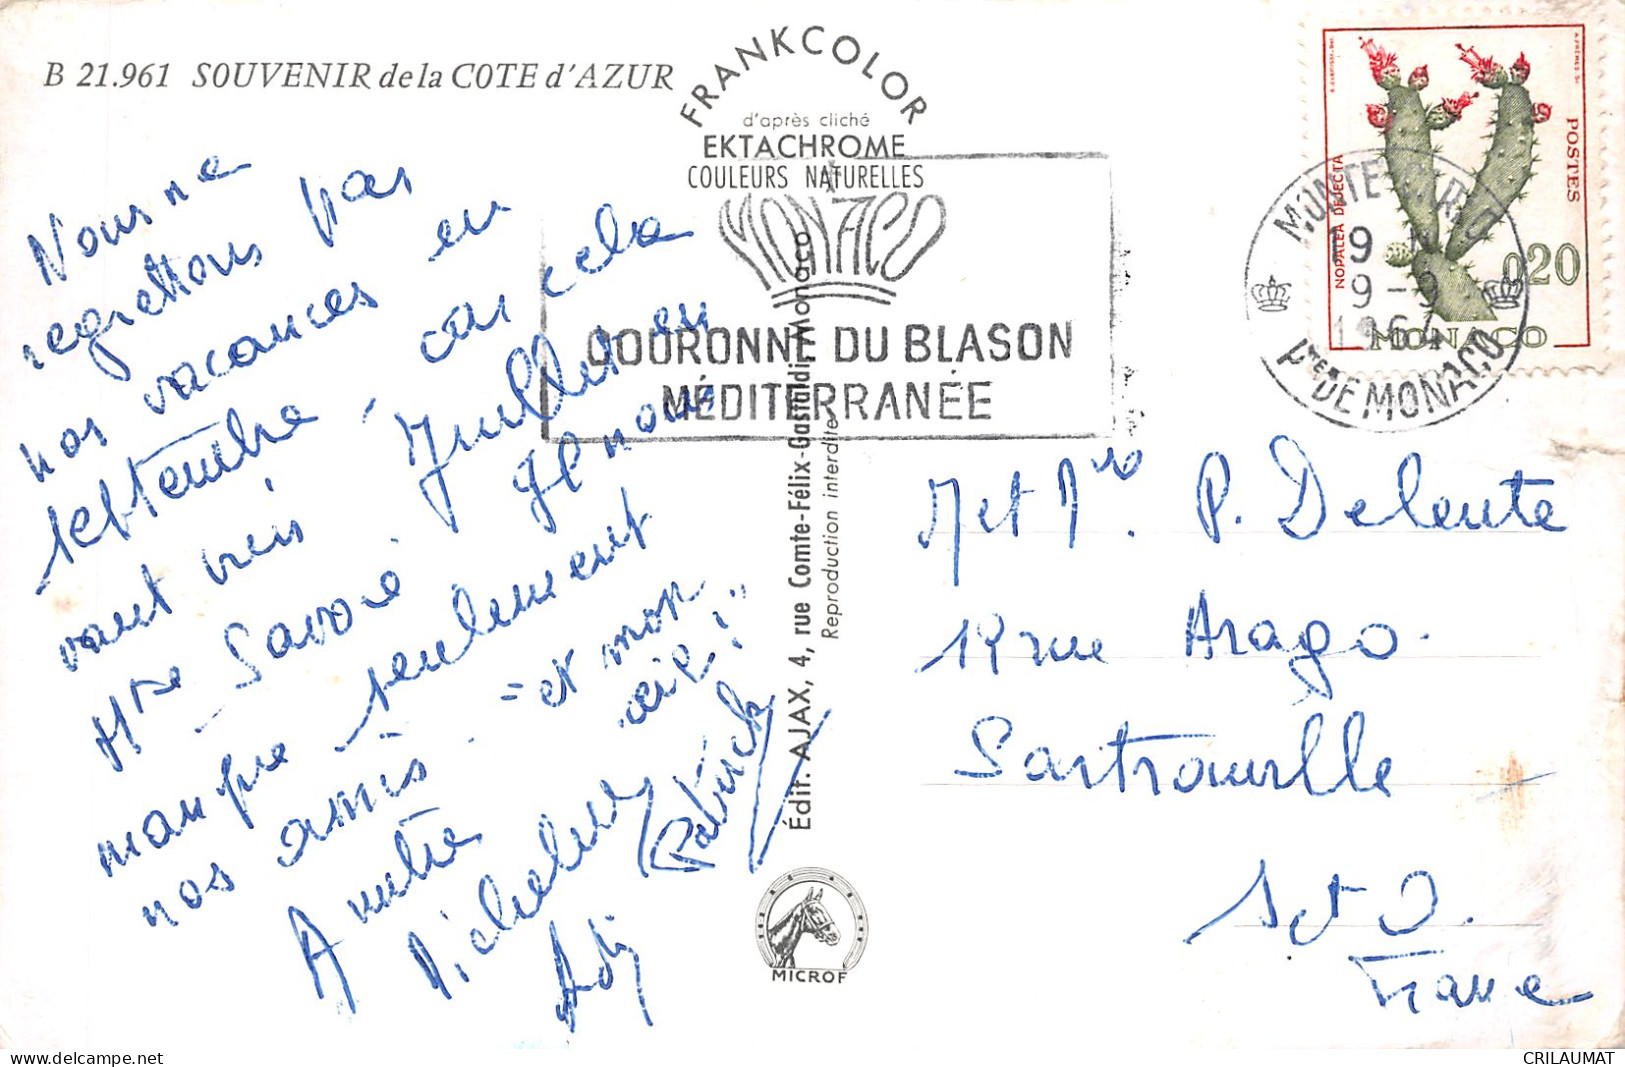 B 21.961 SOUVENIR de la COTE d'AZUR
FRANKCOLOR
d'après cliché
EKTACHROME
COULEURS NATURELLES
MONACO
COURONNE DU BLASON
MÉDITERRANÉE
MONTE-CARLO
19 H
9-9
1964
Pté DE MONACO
NOPALEA DEJECTA
POSTES
0,20
MONACO
Nous ne
regrettons pas
nos vacances en
septembre car cela
vaut mis Juillet en
Hte Savoie. Il nous
manque seulement
nos amis. = et mon
air!"
A votre
Micheline
Patrick
Édit. AJAX, 4, rue Comte-Félix-Gastaldi, Monaco
Reproduction interdite
MICROF
M et Me P. Delente
12 rue Arago.
Sartrouville
S et O.
France
CRILAUMAT